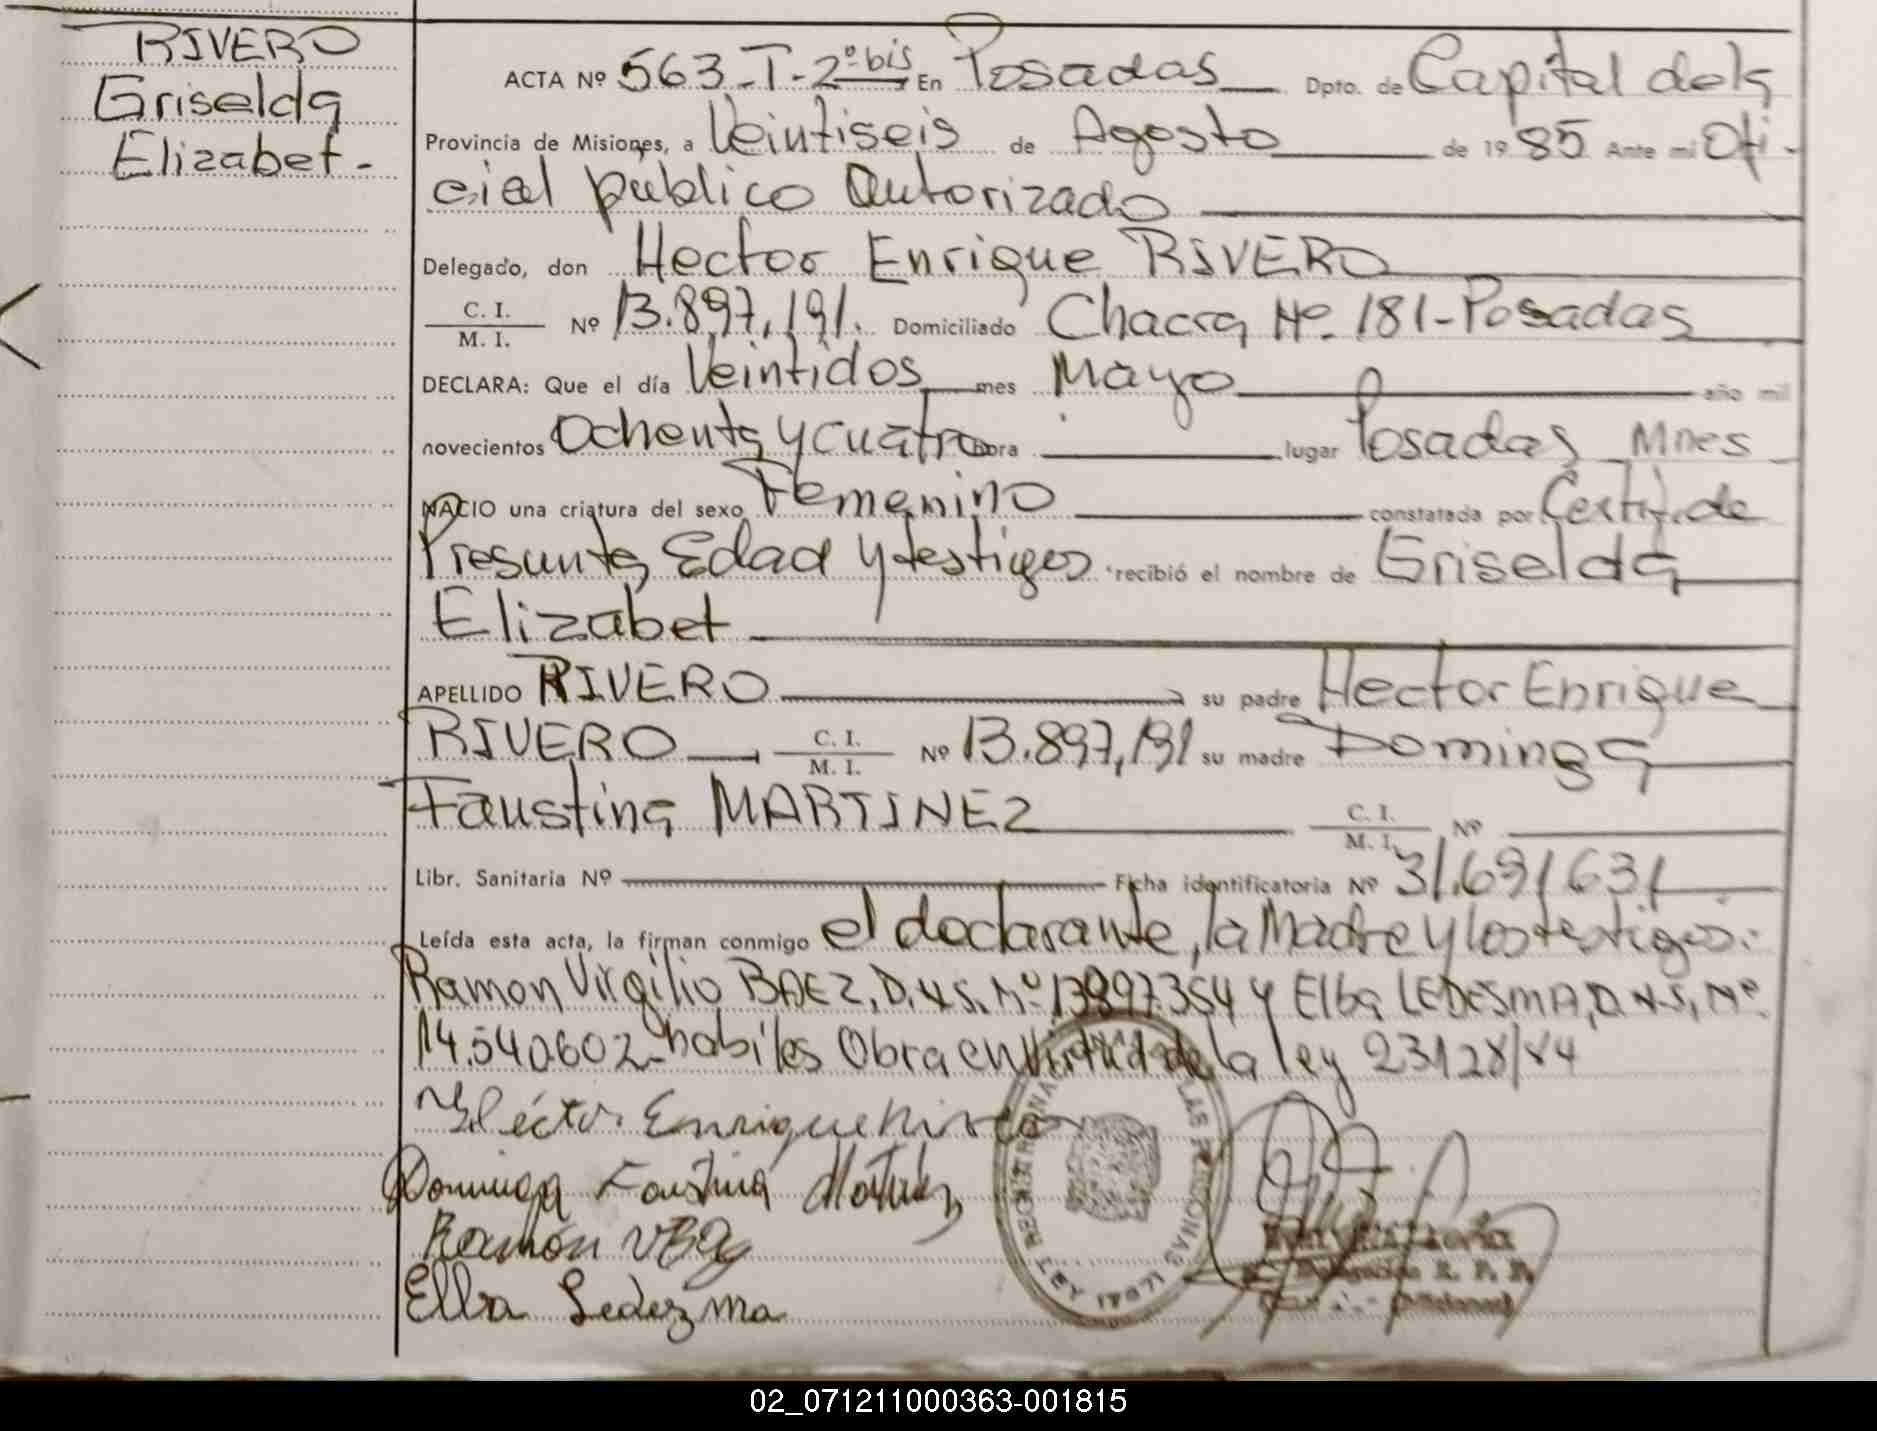 RIVERO
Griselda
Elizabet-
ACTA Nº 563-T-2º bis En Posadas Dpto. de Capital de la
Provincia de Misiones, a Veintiseis de Agosto de 1985 Ante mi Ofi-
cial público Autorizado
Delegado, don Hector Enrique RIVERO
C. I.
M. I.
Nº 13.897,191. Domiciliado Chacra Nº 181-Posadas
DECLARA: Que el día Veintidos mes Mayo año mil
novecientos Ochenta y cuatro hora lugar Posadas Mnes
NACIO una criatura del sexo Femenino constatada por Certif. de
Presunta Edad y testigos recibió el nombre de Griselda
Elizabet
APELLIDO RIVERO su padre Hector Enrique
RIVERO C. I.
M. I.
Nº 13.897,191 su madre Dominga
Faustina MARTINEZ C. I.
M. I.
Nº
Libr. Sanitaria Nº Ficha identificatoria Nº 31.691631
Leída esta acta, la firman conmigo el declarante, la Madre y los testigos:
Ramon Virgilio BAEZ, D.N.S. Nº 13897354 y Elba LEDESMA, D.N.S, Nº
14.540602- habiles Obra en Virtud de la ley 23128/84
Héctor Enrique
Dominga Faustina
Ramón
Elba Ledezma
LEY 17671 REGISTRO NACIONAL LAS PERSONAS